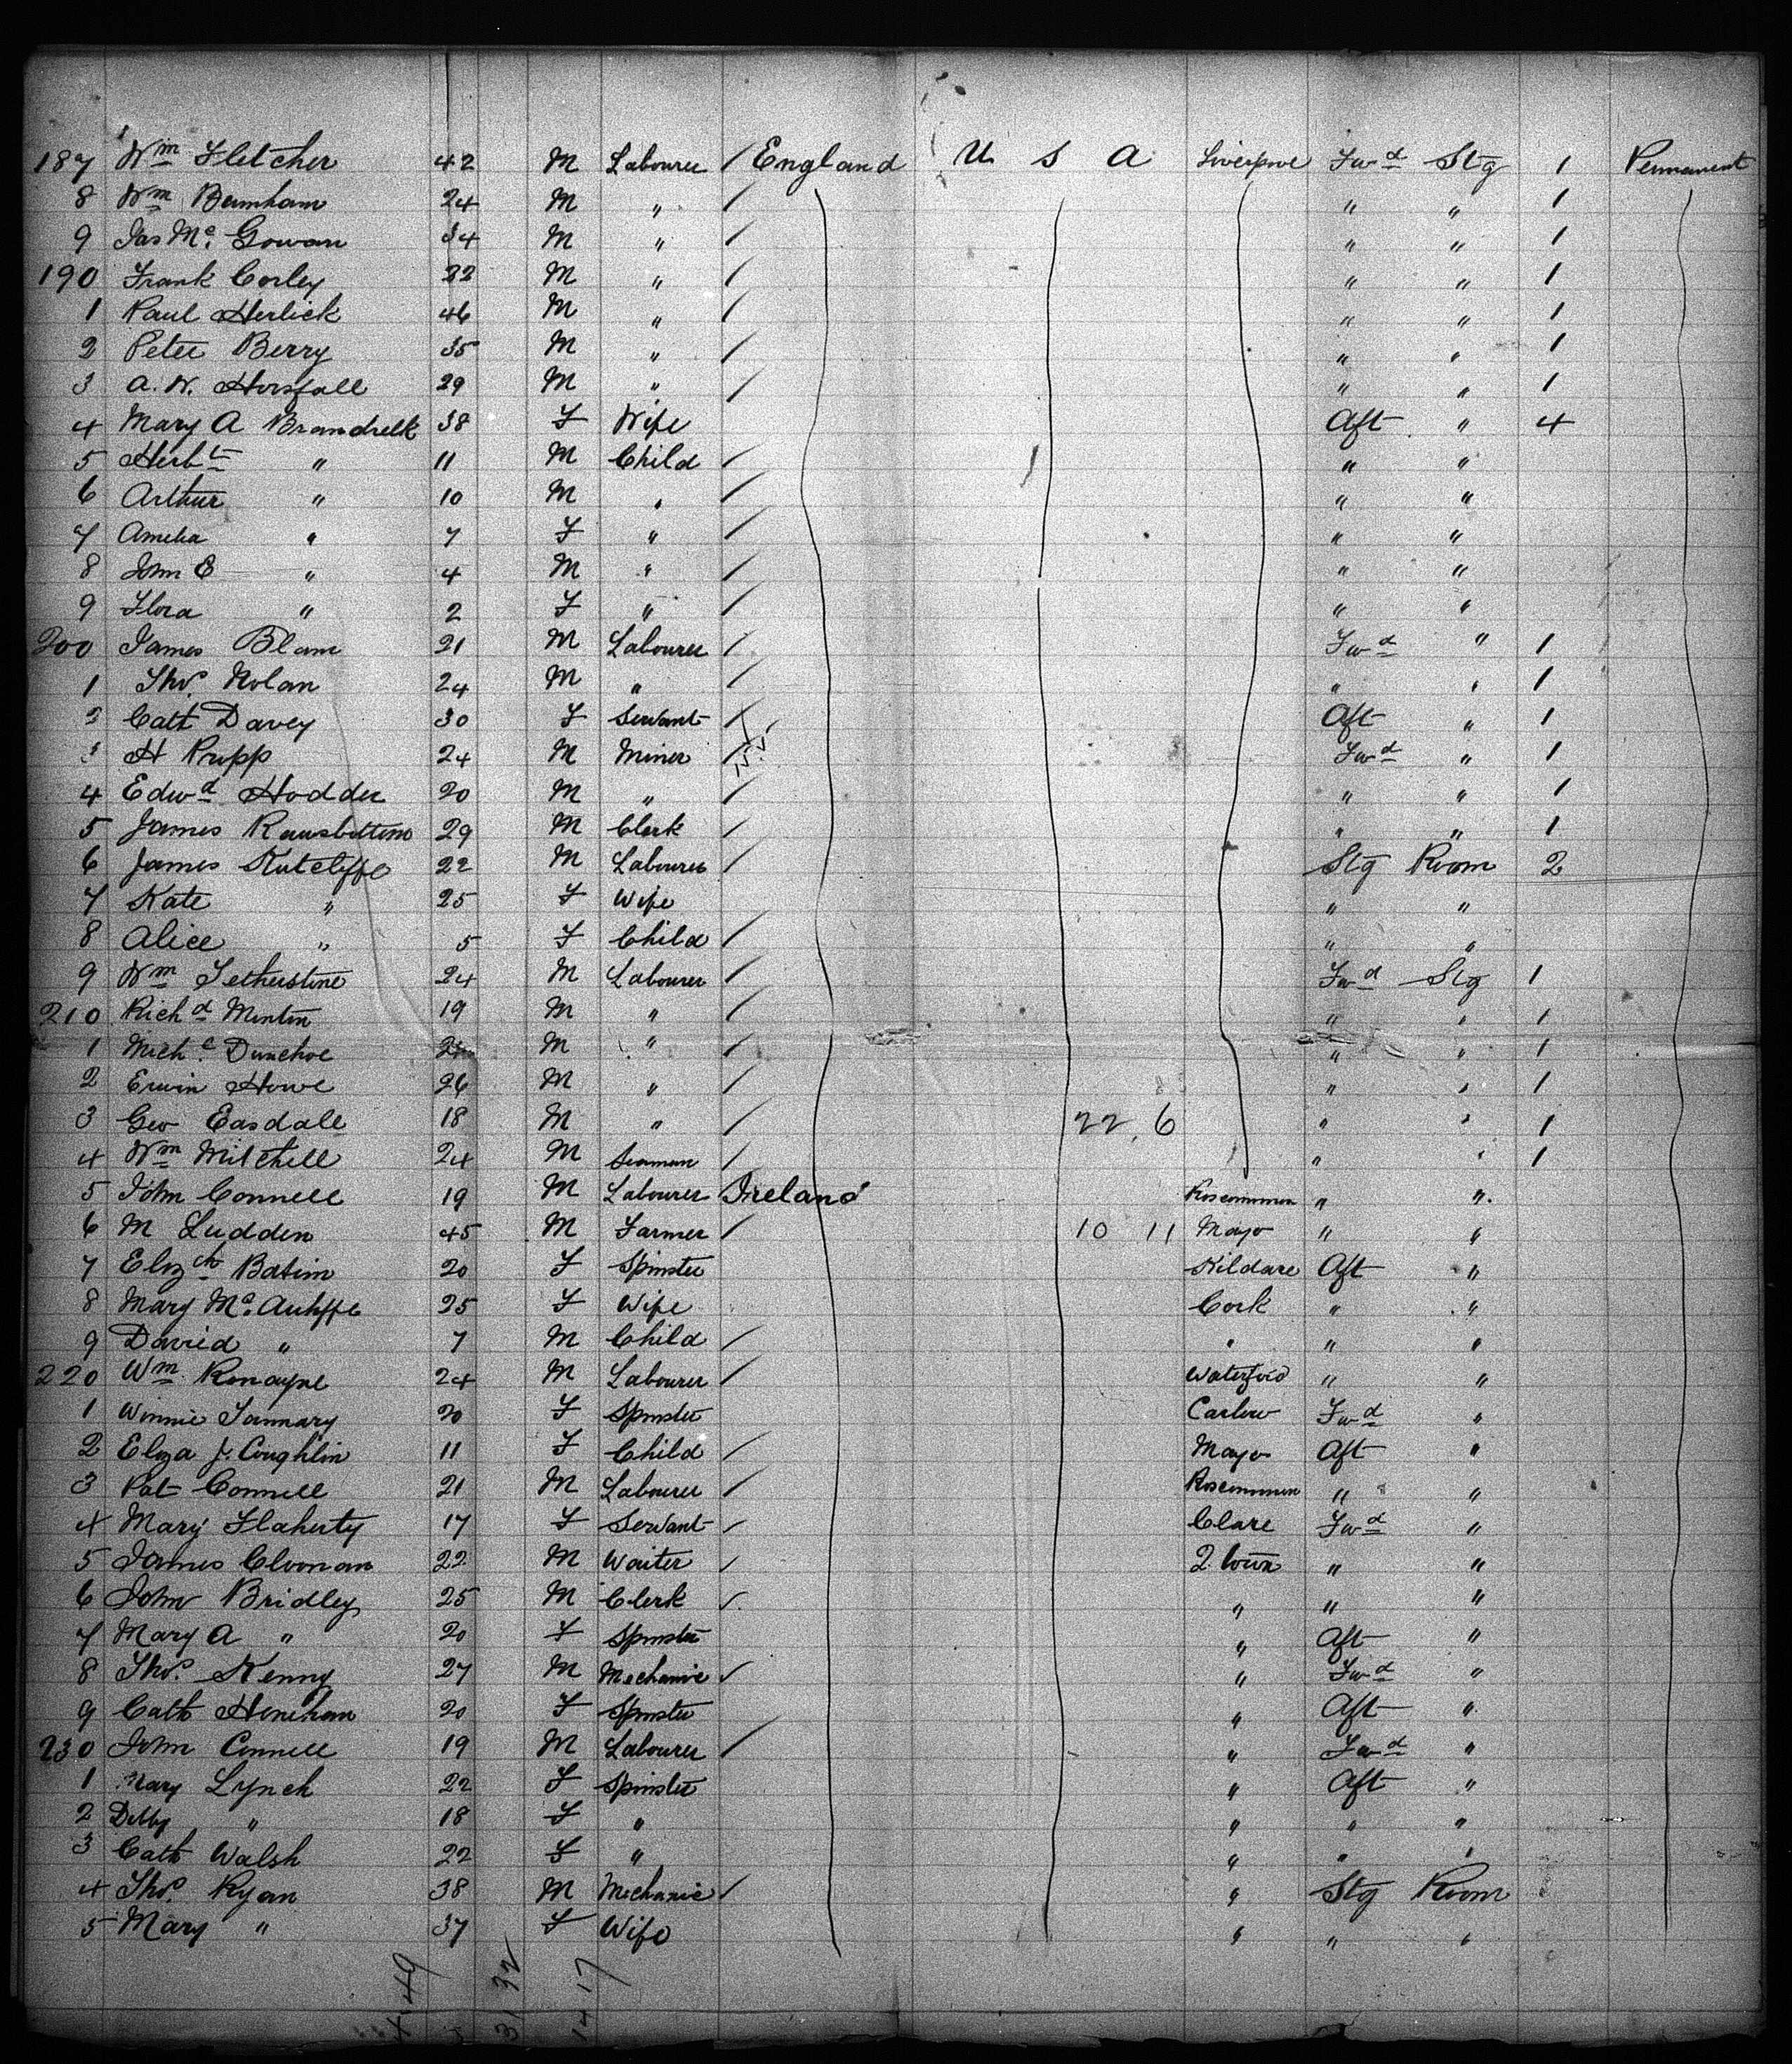 187 Wm Fletcher 42 M Labourer / England U S A Liverpool Fwd Stg 1 Permanent
8 Wm 24 M " / " " 1
9 Jas Mc Gowan 34 M " / " " 1
190 Frank Corley 22 M " / " " 1
1 Paul Herlick 46 M " / " " 1
2 Peter Berry 35 M " / " " 1
3 A. W. Horsfall 29 M " / " " 1
4 Mary A 38 F Wife Aft " 4
5 Herbt " 11 M Child / " "
6 Arthur " 10 M " / " "
7 Amelia " 7 F " / " "
8 John E " 4 M " / " "
9 Flora " 2 F " / " "
200 James Blam 21 M Labourer / Fwd " 1
1 Thos Nolan 24 M " / " " 1
2 Cath Davey 30 F Servant / Aft " 1
3 H Pupp 24 M Miner / Fwd " 1
4 Edwd Hodder 20 M " / " " 1
5 James Ramsbottom 29 M Clerk / " " 1
6 James Sutcliffe 22 M Labourer / Stg Room 2
7 Kate " 25 F Wife " "
8 Alice " 5 F Child / " "
9 Wm 24 M Labourer / Fwd Stg 1
210 Richd Minton 19 M " / " " 1
1 Michl Dunehoe M " / " " 1
2 Erwin Howe 26 M " / " " 1
3 Geo Easdale 18 M " / 22. 6 " " 1
4 Wm Mitchell 24 M Seaman / " " 1
5 John Connell 19 M Labourer Ireland Roscommon " "
6 M Ludden 45 M Farmer / 10 11 Mayo " "
7 Elizth 20 F Spinster Kildare Aft "
8 Mary Mc Auliffe 25 F Wife Cork " "
9 David " 7 M Child / " " "
220 Wm Ronayne 24 M Labourer / Waterford " "
1 Winnie 20 F Spinster Carlow Fwd "
2 Eliza J. Coughlin 11 F Child / Mayo Aft "
3 Pat Connell 21 M Labourer / Roscommon " "
4 Mary Flaherty 17 F Servant / Clare Fwd "
5 James Cloonan 22 M Waiter / Q. town " "
6 John Bridley 25 M Clerk / " " "
7 Mary A " 20 F Spinster " Aft "
8 Thos Kenny 27 M Mechanic / " Fwd "
9 Cath Henehan 20 F Spinster " Aft "
230 John Connell 19 M Labourer / " Fwd "
1 Mary Lynch 22 F Spinster " Aft "
2 Delby " 18 F " " " "
3 Cath Walsh 22 F " " " "
4 Thos Ryan 38 M Mechanic / " Stg Room
5 Mary " 37 F Wife " " "
49 31 32 14 17